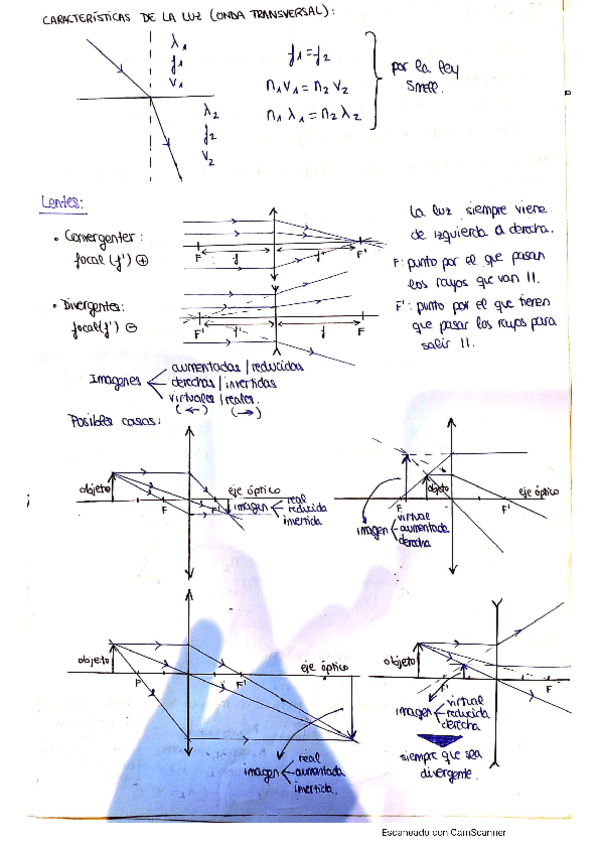 CARACTERÍSTICAS DE LA LUZ (ONDA TRANSVERSAL):
λ₁
f₁
v₁
λ₂
f₂
v₂
f₁=f₂
n₁v₁=n₂v₂
n₁λ₁=n₂λ₂
por la ley
Snell.
Lentes:
• Convergenter:
focal (f') ⊕
F f f' F'
• Divergentes:
focal (f') ⊖
F' f' f F
La luz siempre viene
de izquierda a derecha.
F: punto por el que pasan
los rayos que van II.
F': punto por el que tienen
que pasar los rayos para
salir II.
Imagenes
aumentadas / reducidas
derechas / invertidas
virtuales / reales.
(←) (→)
Posibles casos:
objeto
F
F'
eje óptico
imagen
real
reducida
invertida
objeto
F
F'
eje óptico
imagen
virtual
aumentada
derecha
objeto
F
F'
eje óptico
imagen
real
aumentada
invertida.
objeto
F'
F
imagen
virtual
reducida
derecha
siempre que sea
divergente.
Escaneado con CamScanner